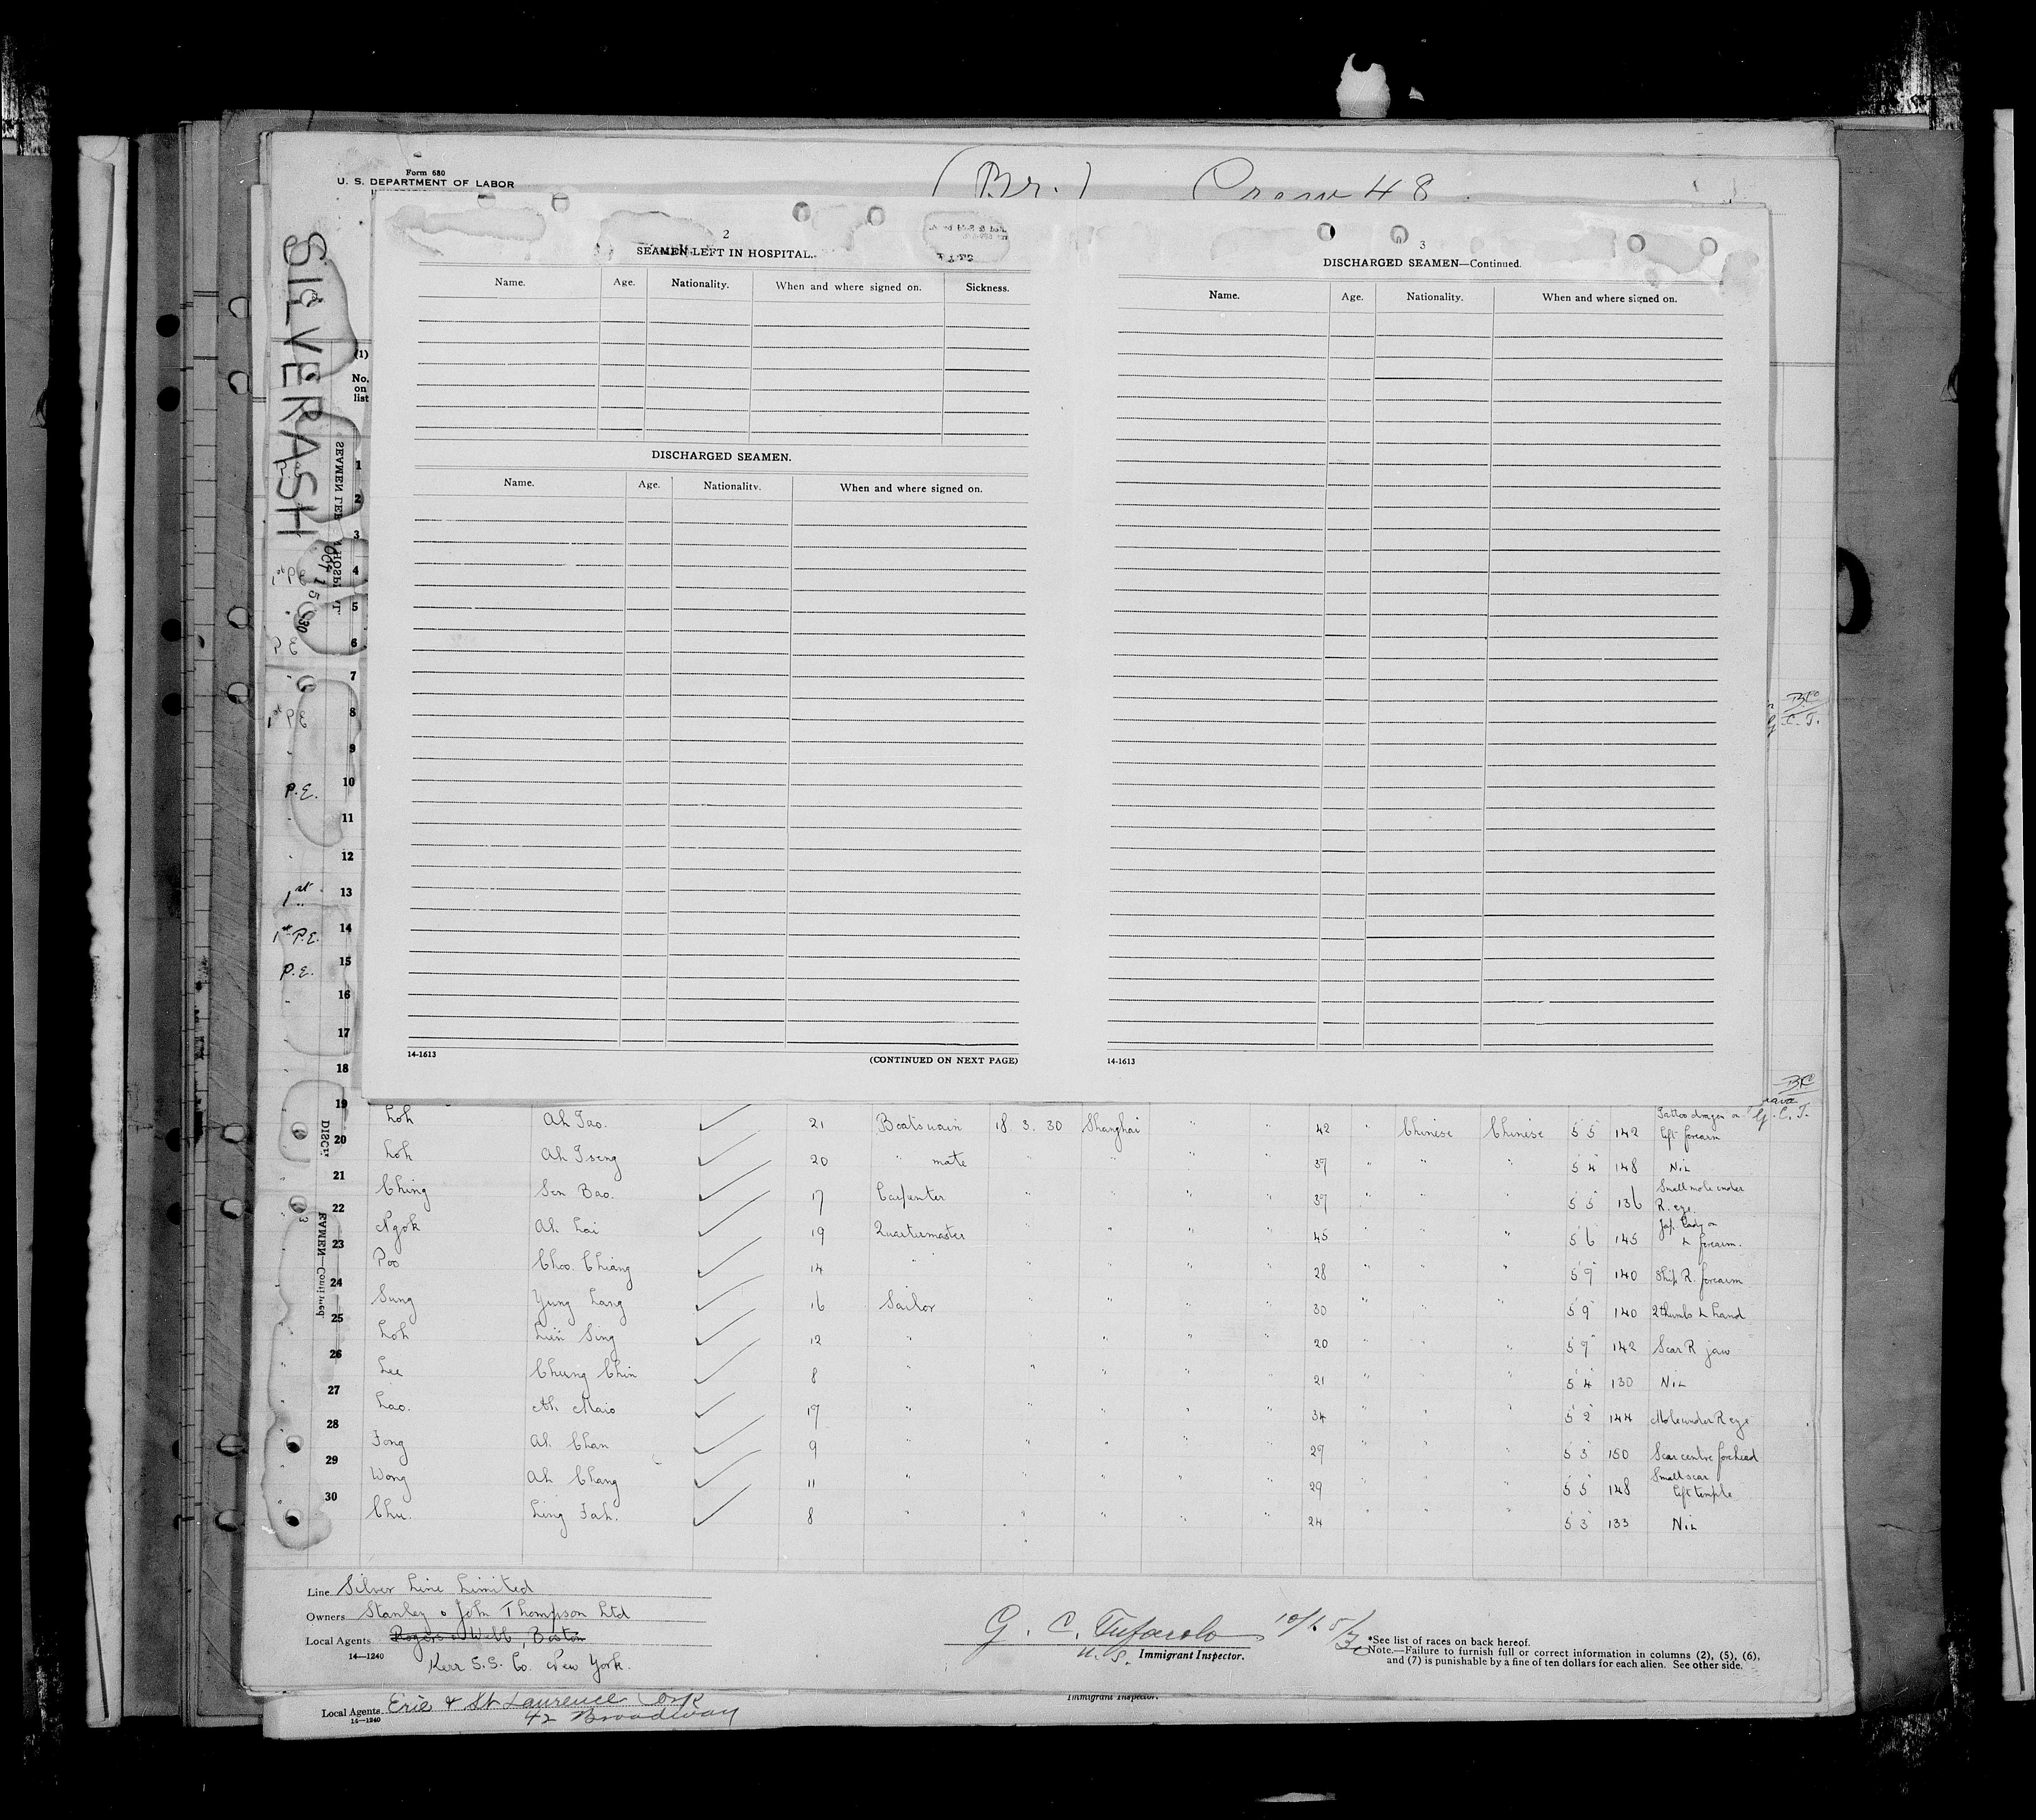 Form 680
U. S. DEPARTMENT OF LABOR
(Br.) Crew 48
SILVERASH
OCT 15 1930
(1)
No. on list
2
SEAMEN LEFT IN HOSPITAL.
Name. Age. Nationality. When and where signed on. Sickness.
DISCHARGED SEAMEN.
Name. Age. Nationality. When and where signed on.
14-1613 (CONTINUED ON NEXT PAGE)
3
DISCHARGED SEAMEN—Continued.
Name. Age. Nationality. When and where signed on.
14-1613
1
2
3
4
5
6
7
8
9
P.E. 10
11
12
1st 13
1st P.E. 14
P.E. 15
16
17
18
19 Loh Ah Tao. ✓ 21 Boatswain 18. 3. 30 Shanghai " " 42 " Chinese Chinese 5 5 142 Tattoo dragon on left forearm
20 Loh Ah Tseng ✓ 20 " mate " " " " 37 " " " 5 4 148 Nil
21 Ching Sen Bao. ✓ 17 Carpenter " " " " 37 " " " 5 5 136 Small mole under R. eye.
22 Ngok Ah Lai ✓ 19 Quartermaster " " " " 45 " " " 5 6 145 Jap. Lady on L forearm.
23 Poo Choo Chiang ✓ 14 " " " " " 28 " " " 5 9 140 Ship R. forearm
24 Sung Yung Lang ✓ 16 Sailor " " " " 30 " " " 5 9 140 2 thumbs L hand
25 Loh Lien Sing ✓ 12 " " " " " 20 " " " 5 9 142 Scar R jaw
26 Lee Chung Chin ✓ 8 " " " " " 21 " " " 5 4 130 Nil
27 Lao. Ah Maio ✓ 17 " " " " " 34 " " " 5 2 144 Mole under R eye
28 Fong Ah Chan ✓ 9 " " " " " 29 " " " 5 3 150 Scar centre forehead
29 Wong Ah Chang ✓ 11 " " " " " 29 " " " 5 5 148 Small scar left temple
30 Chu. Ling Fah. ✓ 8 " " " " " 24 " " " 5 3 133 Nil
Line Silver Line Limited
Owners Stanley & John Thompson Ltd
Local Agents Rogers & Webb, Boston
14—1240 Kerr S.S. Co. New York.
G. C. Tufarolo 10/15/30
U.S. Immigrant Inspector.
*See list of races on back hereof.
Note.—Failure to furnish full or correct information in columns (2), (5), (6),
and (7) is punishable by a fine of ten dollars for each alien. See other side.
Local Agents Erie & St Laurence Corp
14—1240 42 Broadway
Immigrant Inspector.